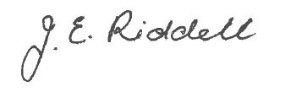 J. E. Riddell